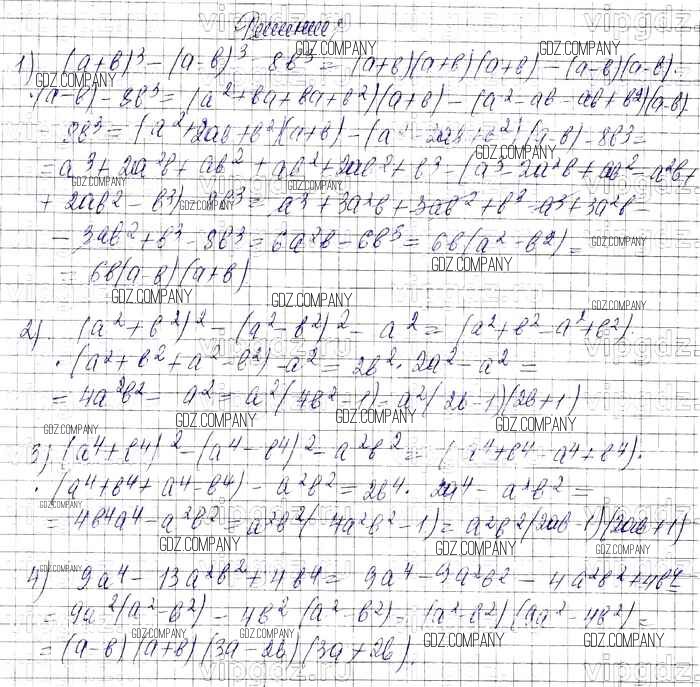 Решение:
1) (a+b)³-(a-b)³-8b³=(a+b)(a+b)(a+b)-(a-b)(a-b)·
·(a-b)-8b³=(a²+ba+ba+b²)(a+b)-(a²-ab-ab+b²)(a-b)
-8b³=(a²+2ab+b²)(a+b)-(a²-2ab+b²)(a-b)-8b³=
=a³+2a²b+ab²+ab²+2ab²+b³-(a³-2a²b+ab²-a²b+
+2ab²-b³)-8b³=a³+3a²b+3ab²+b³-a³+3a²b-
-3ab²+b³-8b³=6a²b-6b³=6b(a²-b²)=
=6b(a-b)(a+b)
2) (a²+b²)²-(a²-b²)²-a²=(a²+b²-a²+b²)·
·(a²+b²+a²-b²)-a²=2b²·2a²-a²=
=4a²b²-a²=a²(4b²-1)=a²(2b-1)(2b+1)
3) (a⁴+b⁴)²-(a⁴-b⁴)²-a²b²=(a⁴+b⁴-a⁴+b⁴)·
·(a⁴+b⁴+a⁴-b⁴)-a²b²=2b⁴·2a⁴-a²b²=
=4b⁴a⁴-a²b²=a²b²(4a²b²-1)=a²b²(2ab-1)(2ab+1)
4) 9a⁴-13a²b²+4b⁴=9a⁴-9a²b²-4a²b²+4b⁴=
=9a²(a²-b²)-4b²(a²-b²)=(a²-b²)(9a²-4b²)=
=(a-b)(a+b)(3a-2b)(3a+2b).